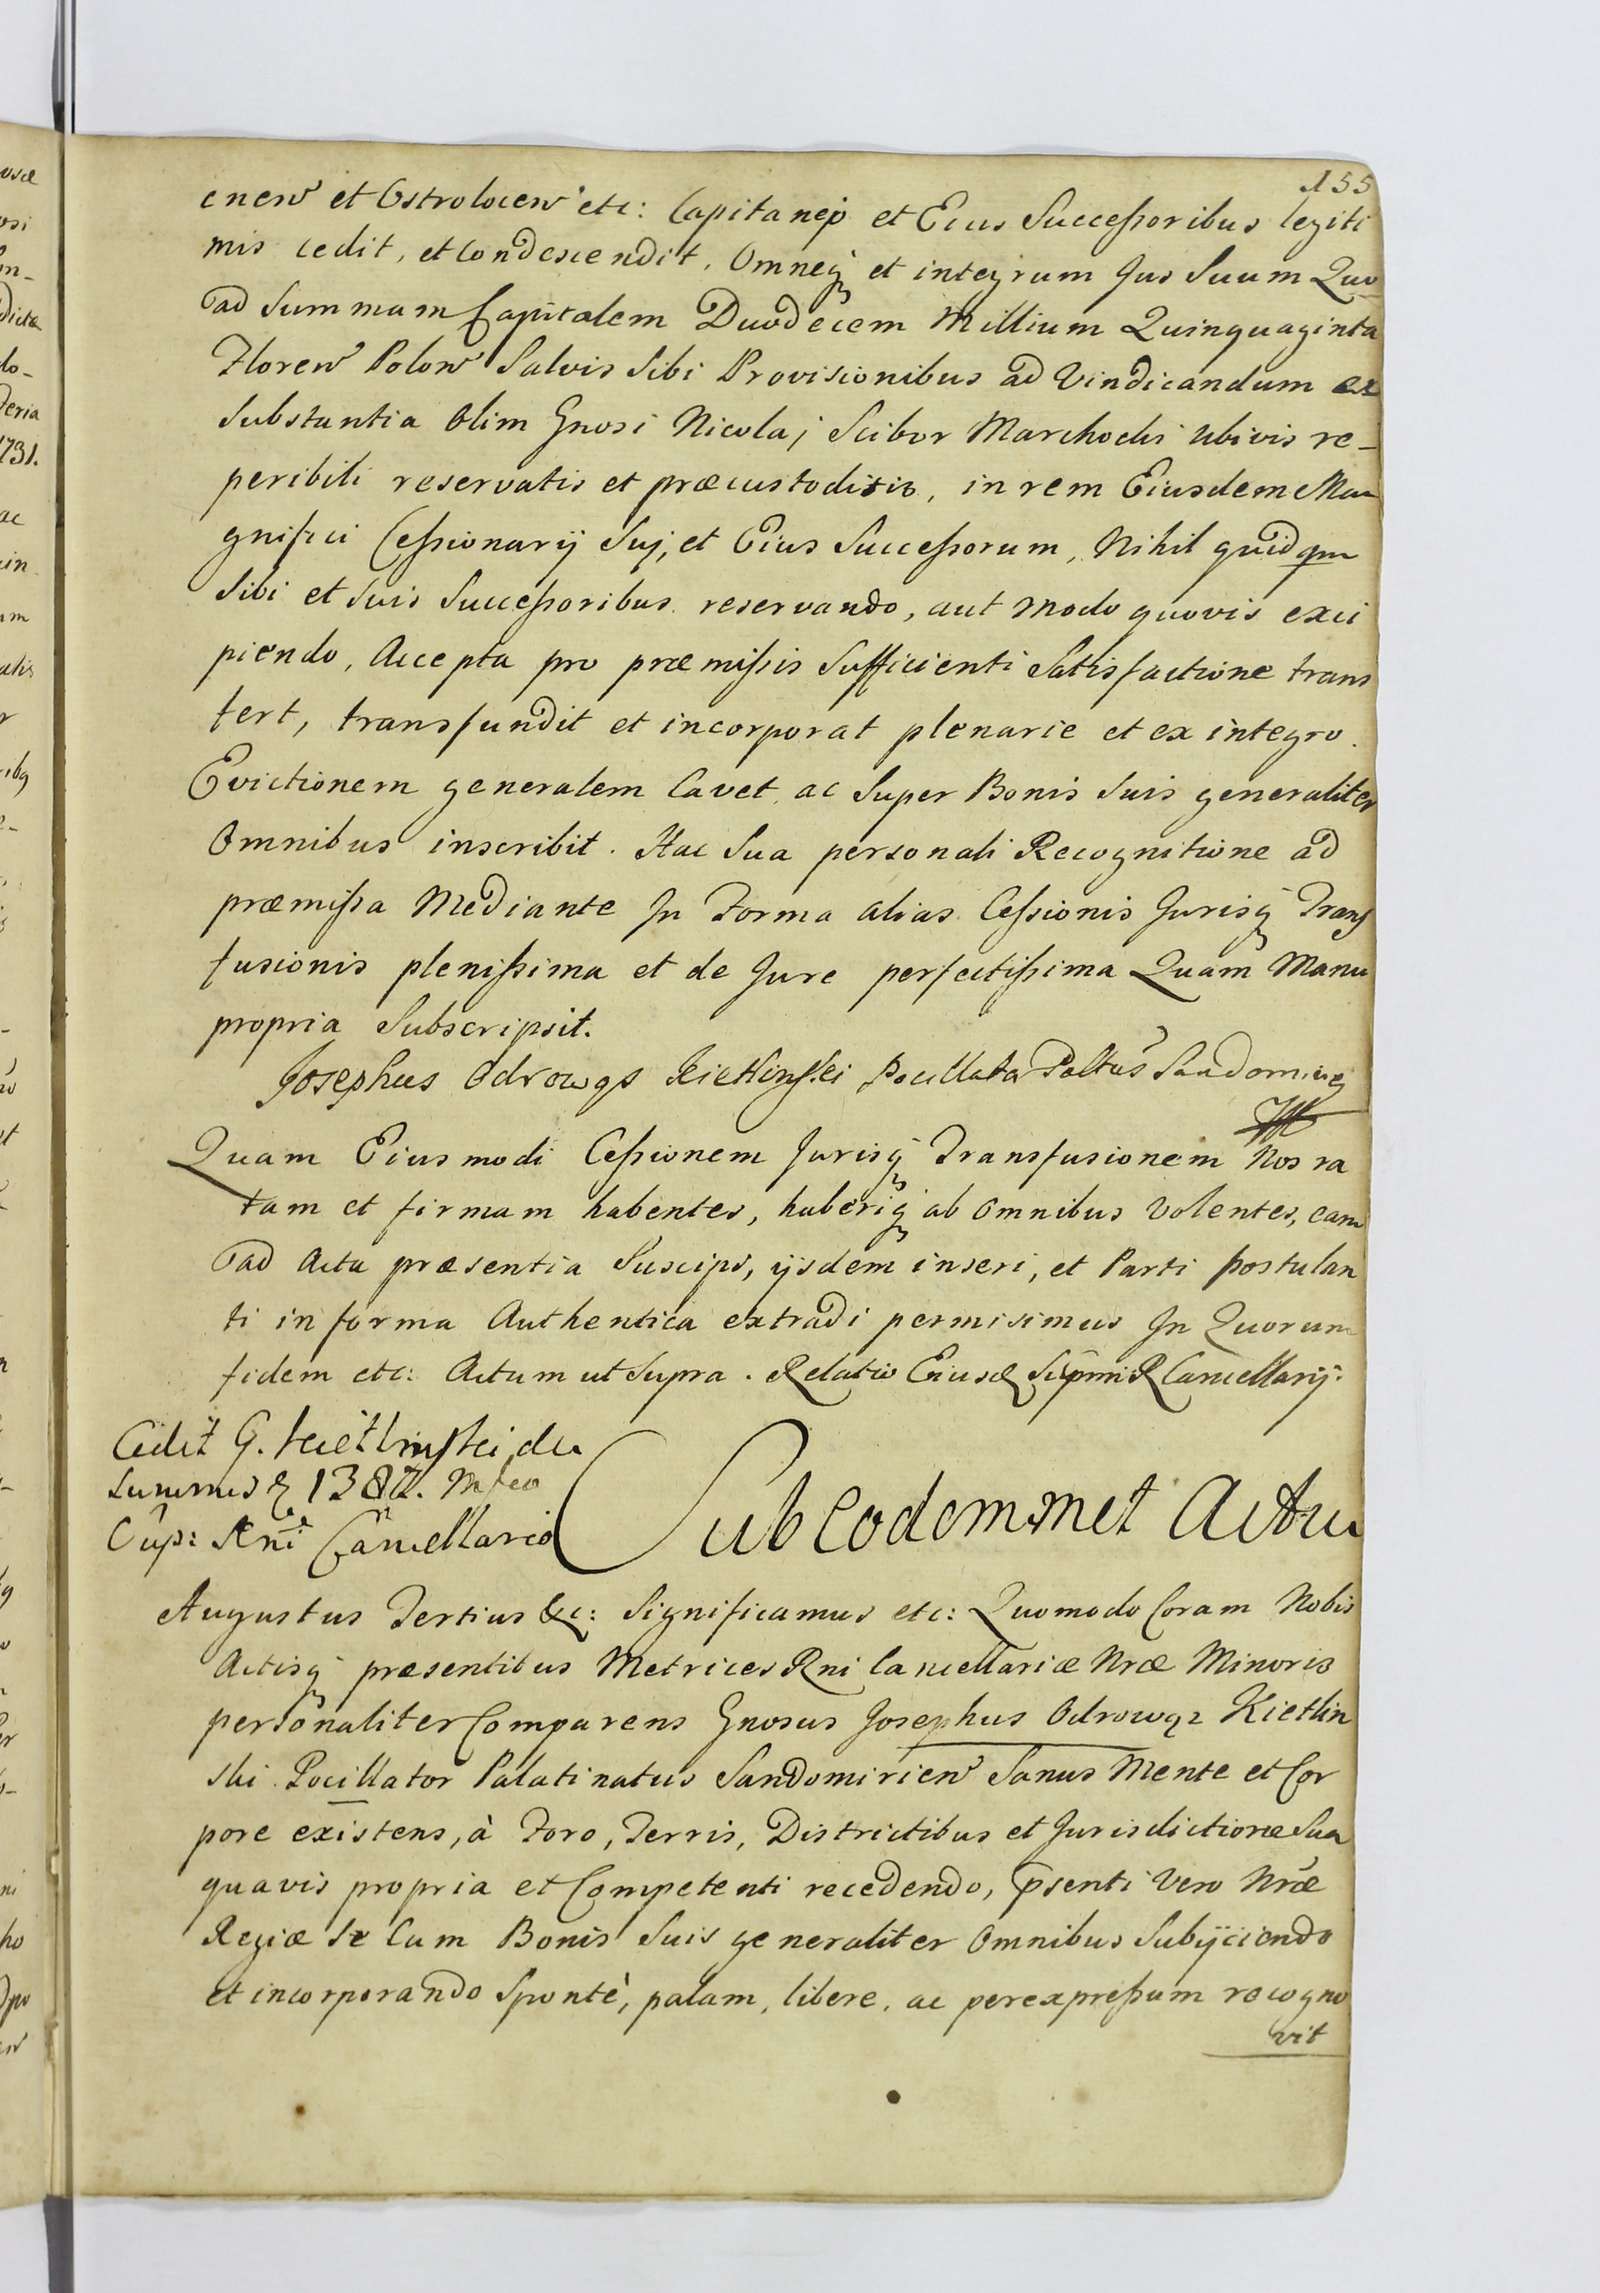 155
cnen et Ostrolocen etc: Capitanej et Eius Successoribus legiti
mis cedit, et condescendit. Omneq et integrum Jus Suum Quo
ad Summam Capitalem Duodecem Millium Quinquaginta
Floren Polon Salvis Sibi Provisionibus ad Vindicandum ex
Substantia Olim Gnosi Nicolaj Scibor Marchocki Ubivis re-
peribili reservatis et præcustoditis, in rem Eiusdem Ma
gnifici Cessionarij Suj, et Eius Successorum, Nihil quidqm
Sibi et Suis Successoribus reservando, aut modo quovis exci
piendo, Accepta pro præmissis Sufficienti Satisfactione trans
fert, transfundit et incorporat plenarie et ex integro.
Evictionem generalem Cavet ac Super Bonis Suis generaliter
Omnibus inscribit. Hac Sua personali Recognitione ad
præmissa Mediante In Forma alias Cessionis Jurisq Trans
fusionis plenissima et de Jure perfectissima Quam Manu
propria Subscripsit.
Josephus Odrowąs Kietlinski Pocillator Paltus Sandomirien
Quam Eiusmodi Cessionem Jurisq Transfusionem Nos ra
tam et firmam habentes, haberiq ab Omnibus Volentes, eam
ad Acta præsentia Suscipi, ijsdem inseri, et Parti postulan
ti in forma Authentica extradi permisimus In Quorum
fidem etc: Actum ut Supra. Relatio Eiusd Supmi R Cancellarij.
Cedit G. Kietlinski de
Summis 1382. Mfco
Sup: Rni Cancellario
Sub Eodemmet Actu
Augustus Tertius &c: Significamus etc: Quomodo Coram Nobis
Actisq præsentibus Metrices Rni Cancellariæ Nræ Minoris
personaliter Comparens Gnosus Josephus Odrowąz Kietlin
ski Pocillator Palatinatus Sandomirien Sanus Mente et Cor
pore existens, à Foro, Terris, Districtibus et Jurisdictione Sua
quavis propria et Competenti recedendo, psenti Vero Nræ
Regiæ Se Cum Bonis Suis generaliter Omnibus Subijciendo
et incorporando Spontè, palam, libere, ac per expressum recogno
vit